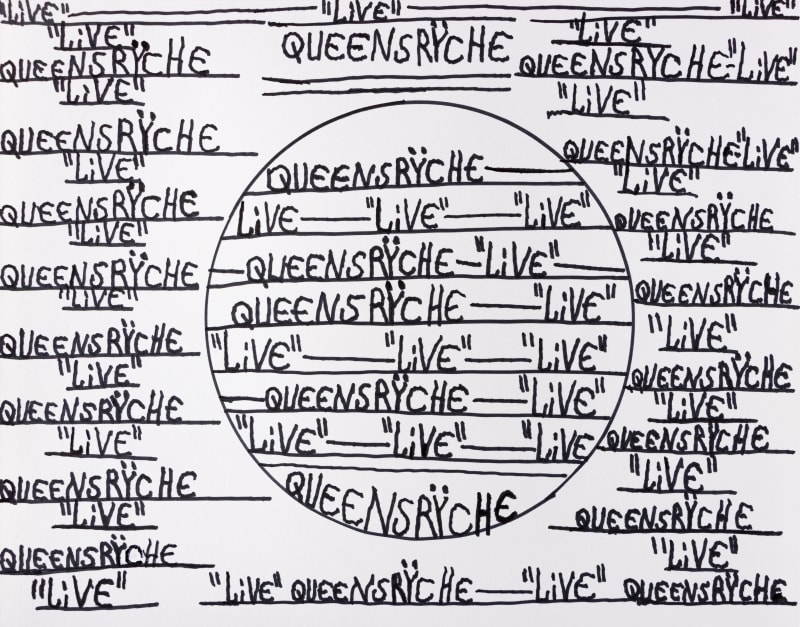 "LiVE" — "LiVE" — "LiVE"
"LiVE"
QUEENSRŸCHE
"LiVE"
QUEENSRŸCHE
"LiVE"
QUEENSRŸCHE
"LiVE"
QUEENSRŸCHE
"LiVE"
QUEENSRŸCHE
"LiVE"
QUEENSRŸCHE
"LiVE"
QUEENSRŸCHE
"LiVE"
QUEENSRŸCHE
"LiVE"
QUEENSRŸCHE
QUEENSRŸCHE —
LiVE — "LiVE" — "LiVE"
— QUEENSRŸCHE — "LiVE" —
QUEENSRŸCHE — "LiVE"
"LiVE" — "LiVE" — "LiVE"
— QUEENSRŸCHE — "LiVE"
"LiVE" — "LiVE" — "LiVE
QUEENSRŸCHE
"LiVE"
QUEENSRŸCHE-"LiVE"
"LiVE"
QUEENSRŸCHE-"LiVE"
"LiVE"
QUEENSRŸCHE
"LiVE"
QUEENSRŸCHE
"LiVE"
QUEENSRŸCHE
"LiVE"
QUEENSRŸCHE
"LiVE"
QUEENSRŸCHE
"LiVE"
"LiVE" QUEENSRŸCHE — "LiVE" QUEENSRŸCHE